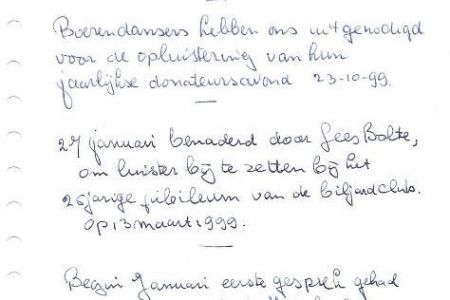 Boerendansers hebben ons uitgenodigd
voor de opluistering van hun
jaarlijkse donateursavond 23-10-99.
27 januari benaderd door Cees Bolte,
om luister bij te zetten bij het
25 jarige jubileum van de biljardclub.
op 13 maart 1999.
Begin Januari eerste gesprek gehad